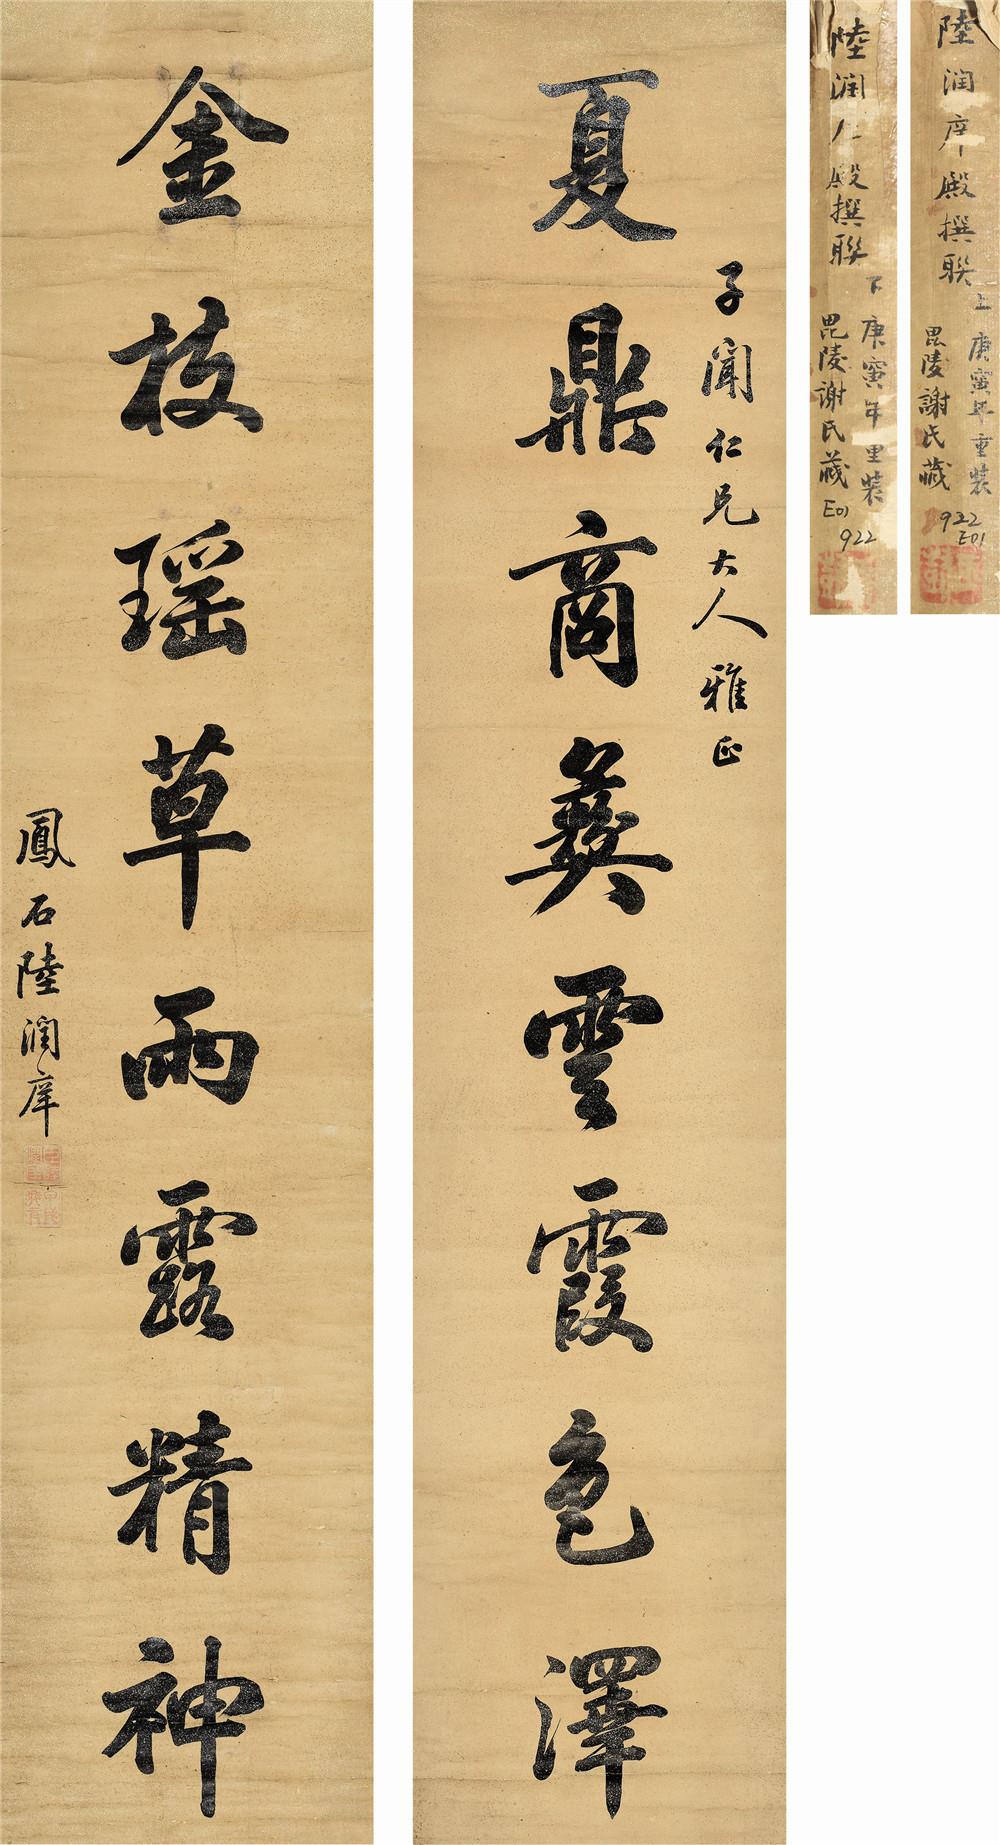 陸润庠殿撰聯
上庚寅年重裝
毘陵謝氏藏
922
E01
陸润
殿撰聯
下庚寅年重裝
毘陵謝氏藏
E01
922
子聞仁兄大人雅正
夏鼎商彝雲霞色澤
金枝瑶草雨露精神
鳳石陸潤庠